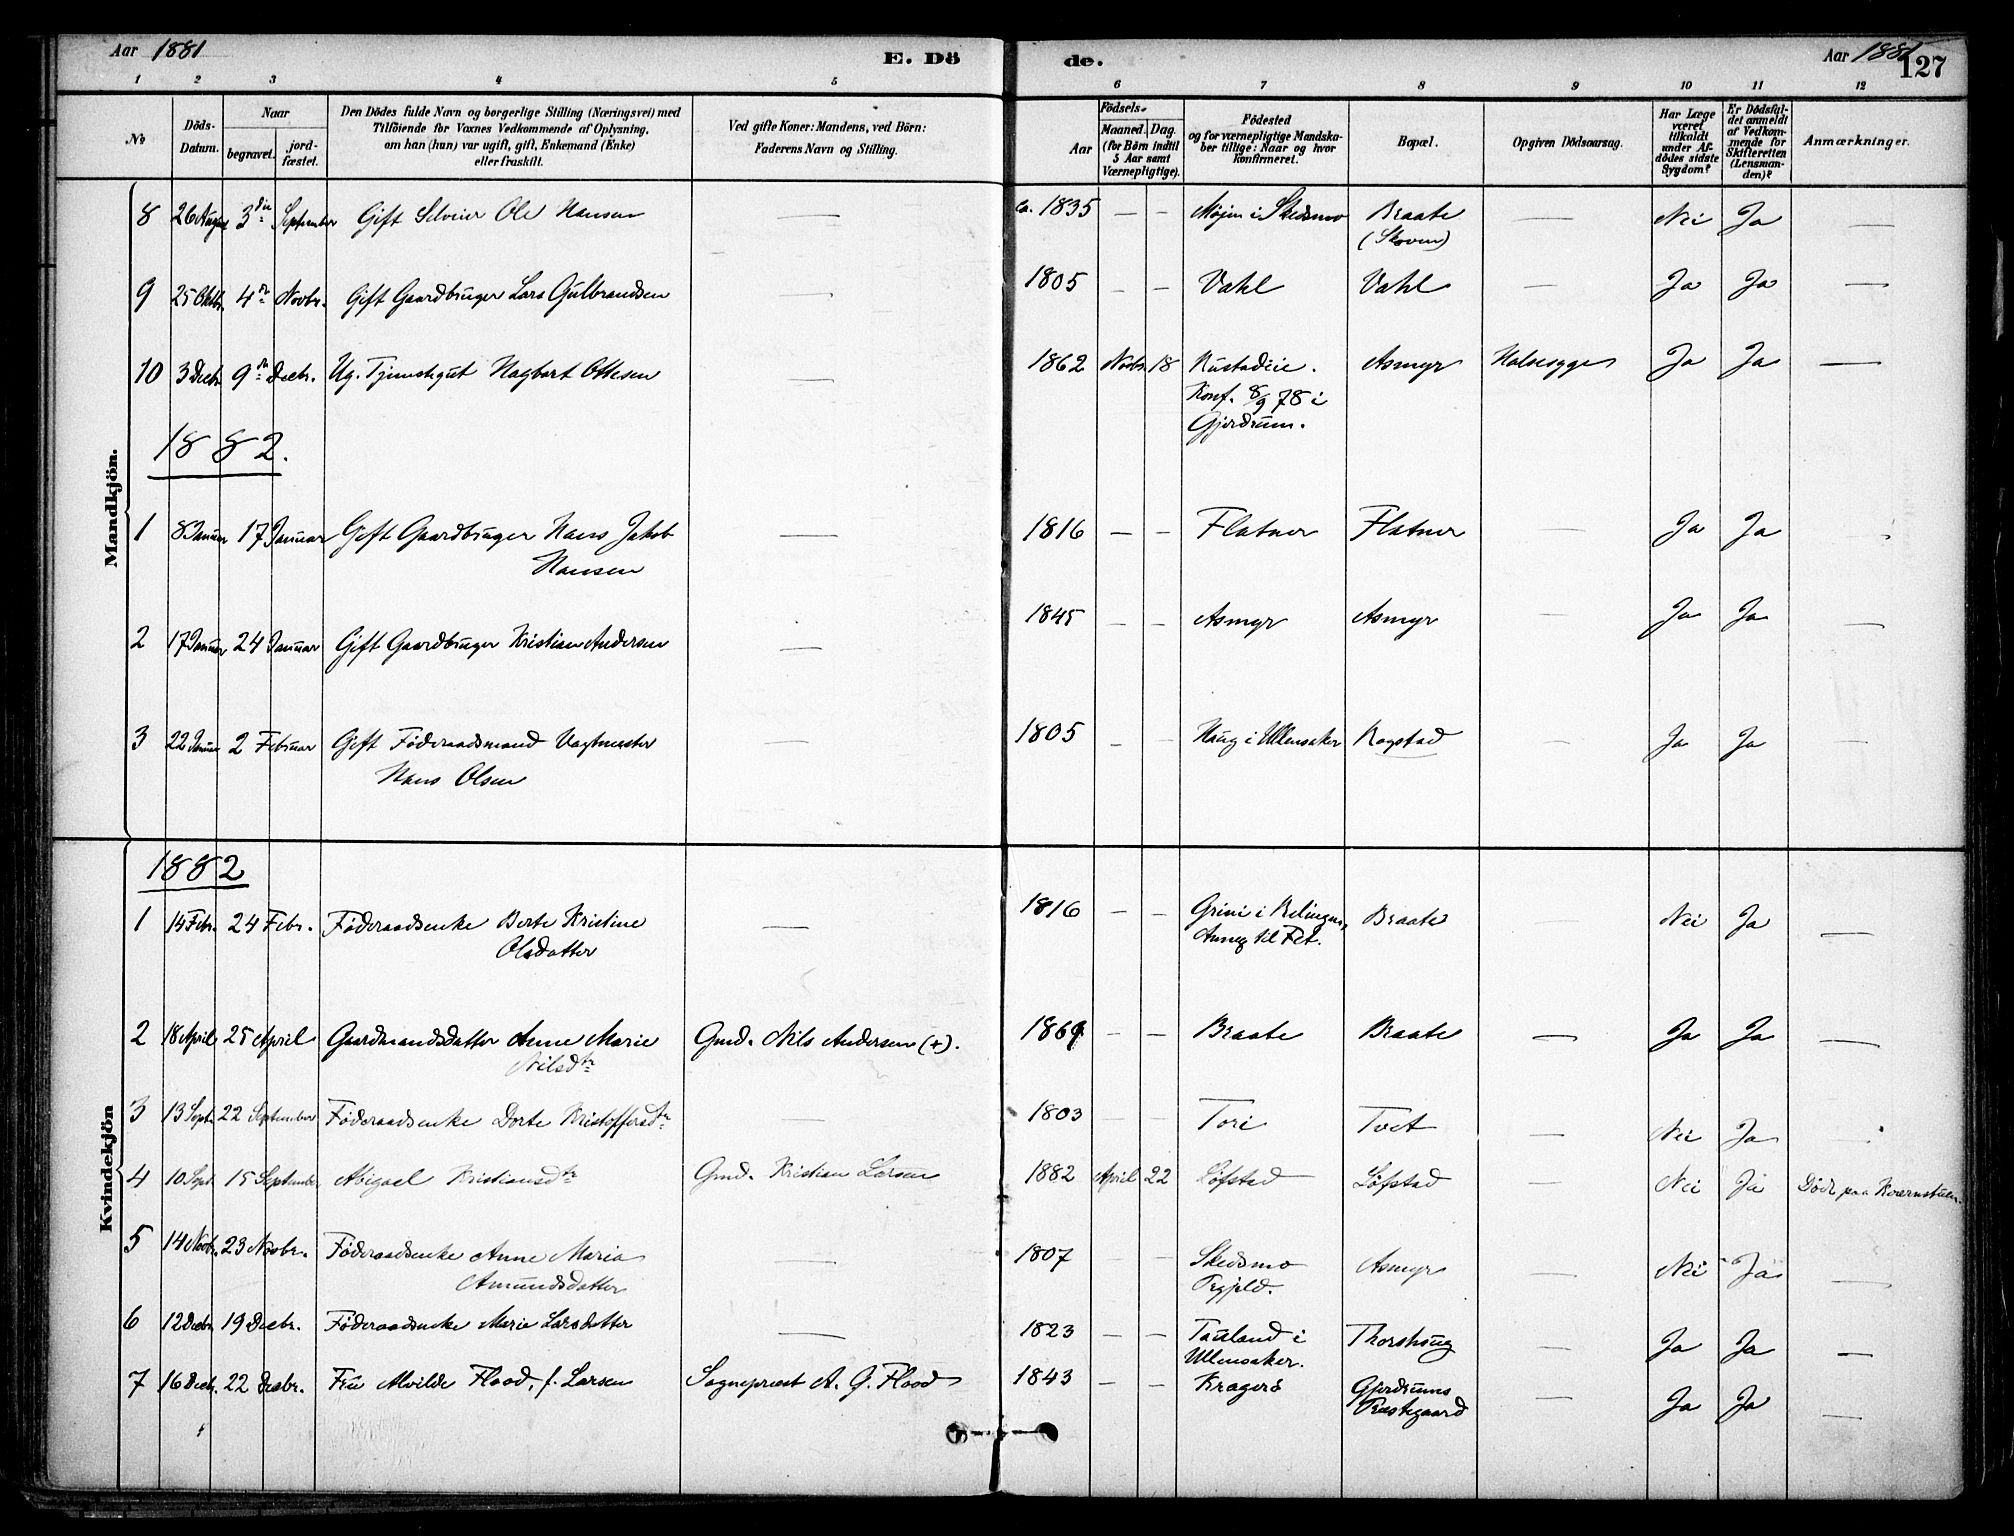 Aar 1881
E. Dö
de.
Aar 1881
127
1 2 3 4 5 6 7 8 9 10 11 12
No
Döds-
Datum.
Naar
begravet.
jord-
fæstet.
Den Dödes fulde Navn og borgerlige Stilling (Næringsvei) med
Tilföiende for Voxnes Vedkommende af Oplysning,
om han (hun) var ugift, gift, Enkemand (Enke)
eller fraskilt.
Ved gifte Koner: Mandens, ved Börn:
Faderens Navn og Stilling.
Födsels-
Aar
Maaned. Dag.
(for Börn indtil
5 Aar samt
Værnepligtige).
Födested
og for værnepligtige Mandska-
ber tillige: Naar og hvor
Konfirmeret.
Bopæl.
Opgiven Dödsaarsag.
Har Læge
været
tilkaldt
under Af-
dödes sidste
Sygdom?
Er Dödsfal-
det anmeldt
af Vedkom-
mende for
Skifteretten
(Lensman-
den)?
Anmærkninger.
Mandkjön.
8 26 August 3die September Gift Selveier Ole Hansen — ca. 1835 — — Mojen i Skedsmo Braate — Nei Ja —
(Skoven)
9 25 Oktbr. 4de Novbr. Gift Gaardbruger Lars Gulbrandsen — 1805 — — Vahl Vahl — Ja Ja —
10 3 Decbr. 9de Decbr. Ug. Tjenestegut Hagbart Ottesen — 1862 Novbr. 18 Rustadeie. Asmyr Halssyge Ja Ja —
Konf. 8/9 78 i
Gjerdrum.
1882.
1 8 Januar 17 Januar Gift Gaardbruger Hans Jakob — 1816 — — Flatner Flatner — Ja Ja —
Hansen
2 17 Januar 24 Januar Gift Gaardbruger Kristian Andersen — 1845 — — Asmyr Asmyr — Ja Ja —
3 22 Januar 2 Februar Gift Föderaadsmand Vagtmester — 1805 — — Haug i Ullensaker Rogstad — Ja Ja —
Hans Olsen
Kvindekjön
1882
1 14 Febr. 24 Febr. Föderaadsenke Berte Kristine — 1816 — — Grini i Relingen, Braate — Nei Ja —
Olsdatter Annex til Fet.
2 18 April 25 April Gaardmandsdatter Anne Marie Gmd. Nils Andersen (+). 1869 — — Braate Braate — Ja Ja —
Nilsdtr
3 13 Septr. 22 September Föderaadsenke Dorte Kristoffersdtr — 1803 — — Tori Tveit — Nei Ja —
4 10 Sept. 15 September Abigael Kristiansdtr Gmd. Kristian Larsen 1882 April 22 Löfstad Löfstad — Nei Ja Död paa Kværnstuen.
5 14 Novbr. 23 Novbr. Föderaadsenke Anne Maria — 1807 — — Skedsmo Asmyr — Nei Ja —
Amundsdatter Prgjeld.
6 12 Decbr. 19 Decbr. Föderaadsenke Marie Larsdatter — 1823 — — Tauland i Thorshaug Ja Ja —
Ullensaker.
7 16 Decbr. 22 Decbr. Fru Alvilde Flood, f. Larsen Sognepræst A. G. Flood 1843 — — Kragerö Gjerdrums — Ja Ja —
Præstegaard